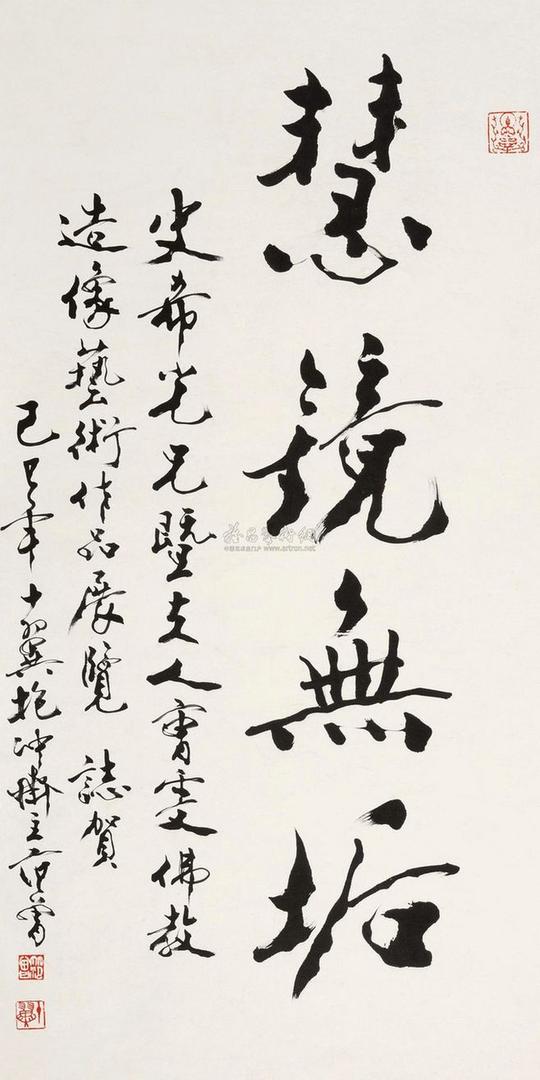 慧鏡無垢
史希光兄暨夫人雯佛教
造像藝術作品展覽 誌賀
己丑年十翼抱冲齋主范曾
雅昌藝術網
www.artron.net